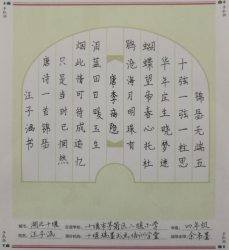 锦瑟无端五
十弦一弦一柱思
华年庄生晓梦迷
蝴蝶望帝春心托杜
鹃沧海月明珠有
唐李商隐
泪蓝田日暖玉生
烟此情可待成追忆
只是当时已惘然
唐诗一首锦瑟
江子涵书
湖北十堰
十堰市茅箭区二堰小学
四年级
江子涵